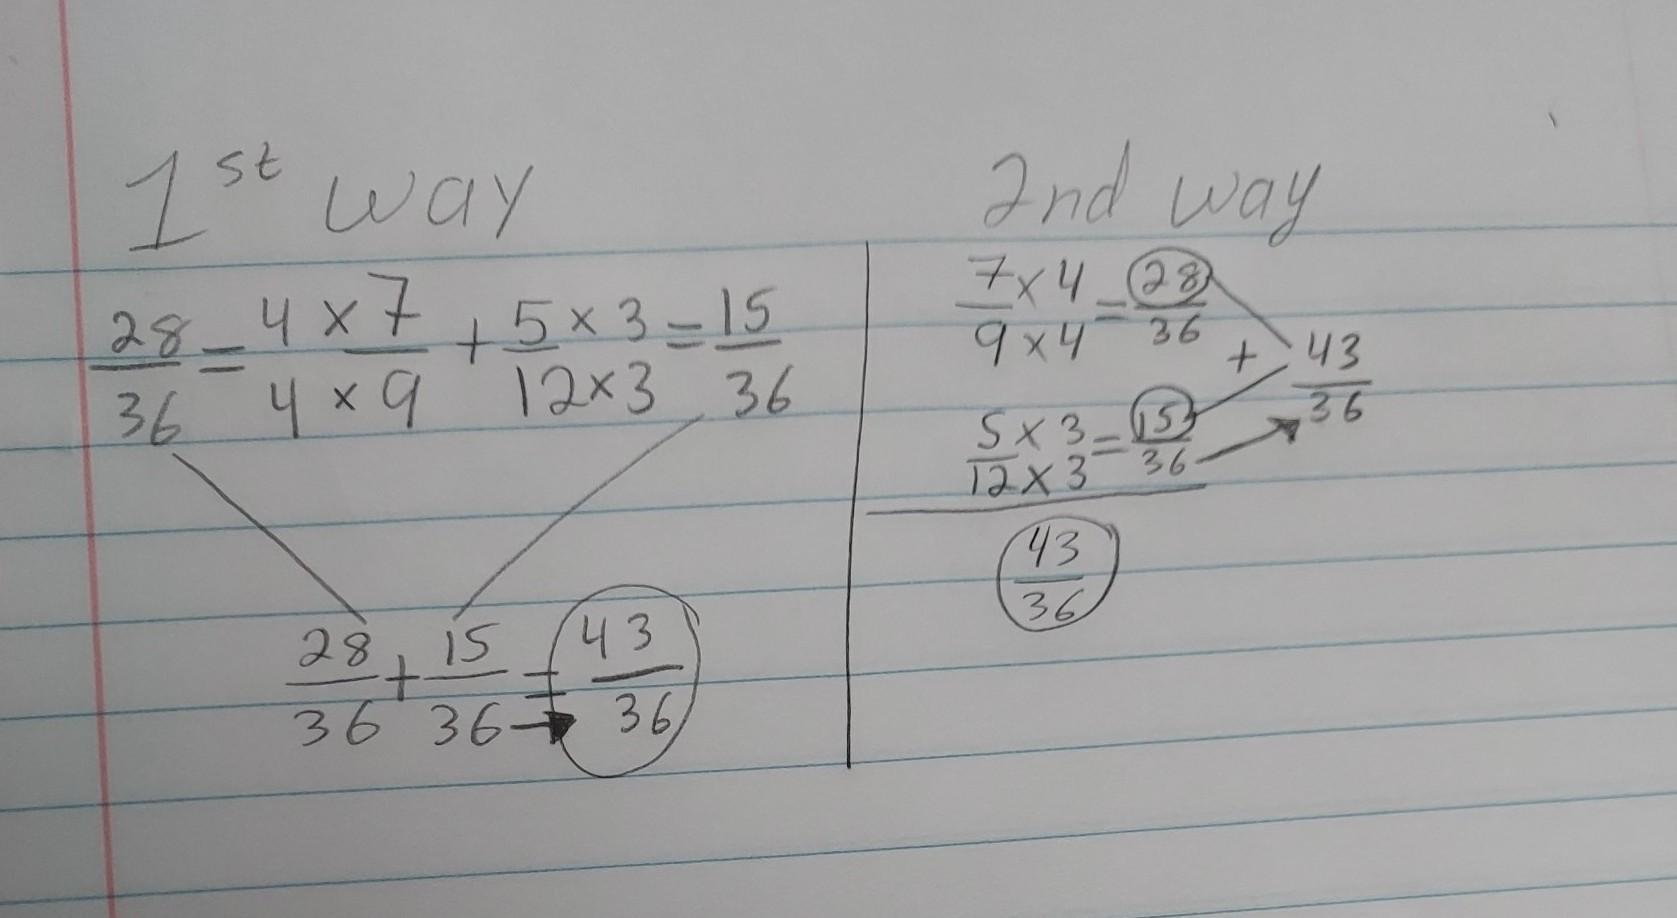 1st way
28/36 = 4 x 7 / 4 x 9 + 5 x 3 / 12 x 3 = 15/36
28/36 + 15/36 = 43/36
2nd way
7 x 4 / 9 x 4 = 28/36
+ 43/36
5 x 3 / 12 x 3 = 15/36
43/36